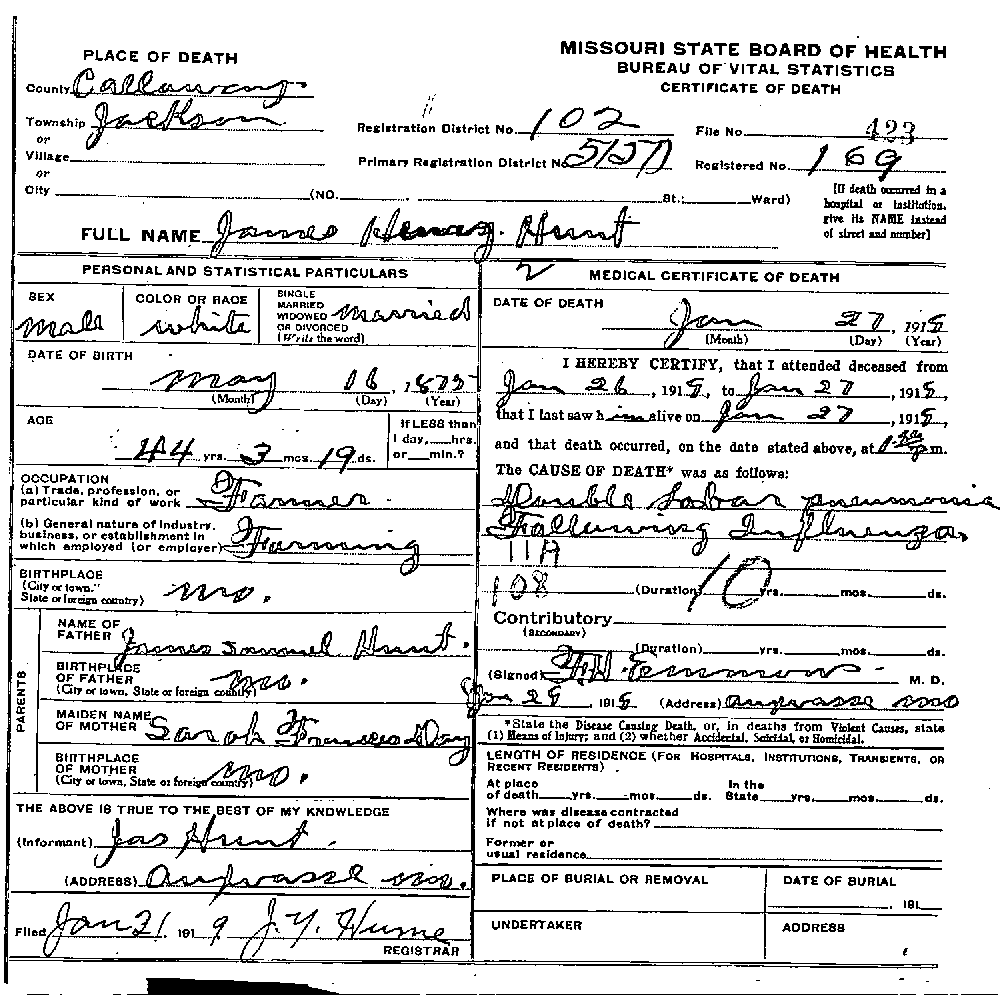 MISSOURI STATE BOARD OF HEALTH
BUREAU OF VITAL STATISTICS
CERTIFICATE OF DEATH
PLACE OF DEATH
County Callaway
Township Jackson
or
Village
or
City (NO. St.; Ward)
Registration District No. 102
File No. 423
Primary Registration District No. 5157
Registered No. 169
[If death occurred in a hospital or institution, give its NAME instead of street and number]
FULL NAME James Henry Hunt
PERSONAL AND STATISTICAL PARTICULARS
SEX
Male
COLOR OR RACE
White
SINGLE
MARRIED
WIDOWED
OR DIVORCED
(Write the word)
Married
DATE OF BIRTH
May 16, 1875
(Month) (Day) (Year)
AGE
44 yrs. 3 mos. 19 ds.
If LESS than
1 day, hrs.
or min.?
OCCUPATION
(a) Trade, profession, or
particular kind of work Farmer
(b) General nature of industry,
business, or establishment in
which employed (or employer) Farming
BIRTHPLACE
(City or town,
State or foreign country) Mo.
PARENTS
NAME OF
FATHER James Samuel Hunt.
BIRTHPLACE
OF FATHER
(City or town, State or foreign country) Mo.
MAIDEN NAME
OF MOTHER Sarah Frances Day
BIRTHPLACE
OF MOTHER
(City or town, State or foreign country) Mo.
THE ABOVE IS TRUE TO THE BEST OF MY KNOWLEDGE
(Informant) Jas Hunt.
(ADDRESS) Auxvasse Mo.
Filed Jan 31 1919 J. Y. Hume
REGISTRAR
2 MEDICAL CERTIFICATE OF DEATH
DATE OF DEATH
Jan 27, 1918
(Month) (Day) (Year)
I HEREBY CERTIFY, that I attended deceased from
Jan 26, 1918, to Jan 27, 1918
that I last saw him alive on Jan 27, 1918
and that death occurred, on the date stated above, at m.
The CAUSE OF DEATH* was as follows:
Double Lobar pneumonia
Following Influenza
11A
108 (Duration) 10 yrs. mos. ds.
Contributory
(SECONDARY)
(Duration) yrs. mos. ds.
(Signed) M. D.
Jan 28, 1918 (Address) Auxvasse Mo
*State the Disease Causing Death, or, in deaths from Violent Causes, state
(1) Means of Injury; and (2) whether Accidental, Suicidal, or Homicidal.
LENGTH OF RESIDENCE (FOR HOSPITALS, INSTITUTIONS, TRANSIENTS, OR
RECENT RESIDENTS).
At place of death yrs. mos. ds. In the State yrs. mos. ds.
Where was disease contracted
if not at place of death?
Former or
usual residence
PLACE OF BURIAL OR REMOVAL
DATE OF BURIAL
, 191
UNDERTAKER
ADDRESS